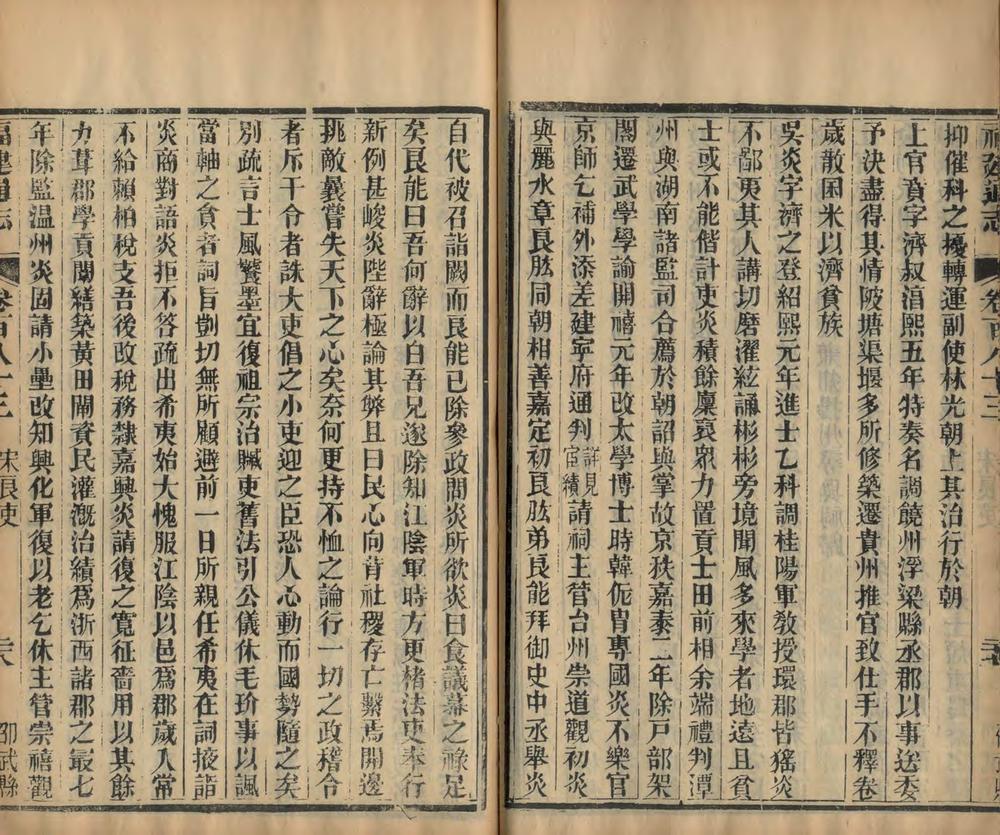 福建通志 卷百八十三
抑催科之擾轉運副使林光朝上其治行於朝
上官賁字濟叔淳熙五年特奏名調饒州浮梁縣丞郡以事送委
予決盡得其情陂塘渠堰多所修築遷貴州推官致仕手不釋卷
歲散囷米以濟貧族
吳炎字濟之登紹熙元年進士乙科調桂陽軍教授環郡皆猺炎
不鄙夷其人講切磨濯絃誦彬彬旁境聞風多來學者地遠且貧
士或不能偕計吏炎積餘廩裒眾力置貢士田前相余端禮判潭
州與湖南諸監司合薦於朝詔與掌故京秩嘉泰二年除戸部架
閣遷武學學諭開禧元年改太學博士時韓侂胄專國炎不樂官
京師乞補外添差建寧府通判詳見宦績請祠主管台州崇道觀初炎
與麗水章良肱同朝相善嘉定初良肱弟良能拜御史中丞舉炎
自代被召詣闕而良能已除參政問炎所欲炎曰食議幕之祿足
矣良能曰吾何辭以白吾兄遂除知江陰軍時方更楮法吏奉行
新例甚峻炎陛辭極論其弊且曰民心向背社稷存亡繫焉開邊
挑敵曩嘗失天下之心矣奈何更持不恤之論行一切之政稽合
者斥干令者誅大吏倡之小吏迎之臣恐人心動而國勢隨之矣
別疏言士風饕墨宜復祖宗治贓吏舊法引公儀休毛玠事以諷
當軸之貪者詞旨剴切無所顧避前一日所親任希夷在詞掖詣
炎商對語炎拒不答疏出希夷始大愧服江陰以邑為郡歲入常
不給賴柏稅支吾後改稅務隸嘉興炎請復之寬征嗇用以其餘
力葺郡學貢闈繕築黃田閘資民灌溉治績為浙西諸郡之最七
年除監溫州炎固請小壘改知興化軍復以老乞休主管崇禧觀
福建通志 卷百八十三 宋良吏 邵武縣